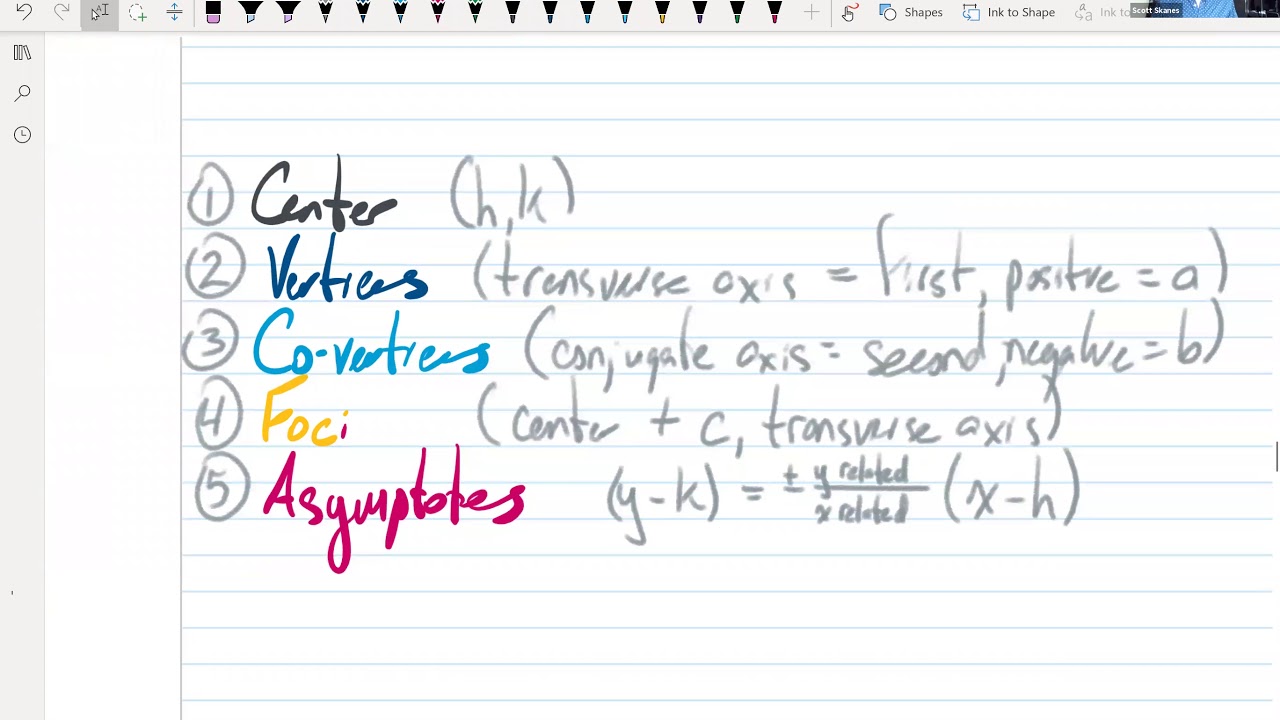 Shapes Ink to Shape Ink to Scott Skanes
① Center (h,k)
② Vertices (transverse axis = first, positive = a)
③ Co-vertices (conjugate axis = second, negative = b)
④ Foci (center + c, transverse axis)
⑤ Asymptotes (y-k) = ± y related / x related (x-h)